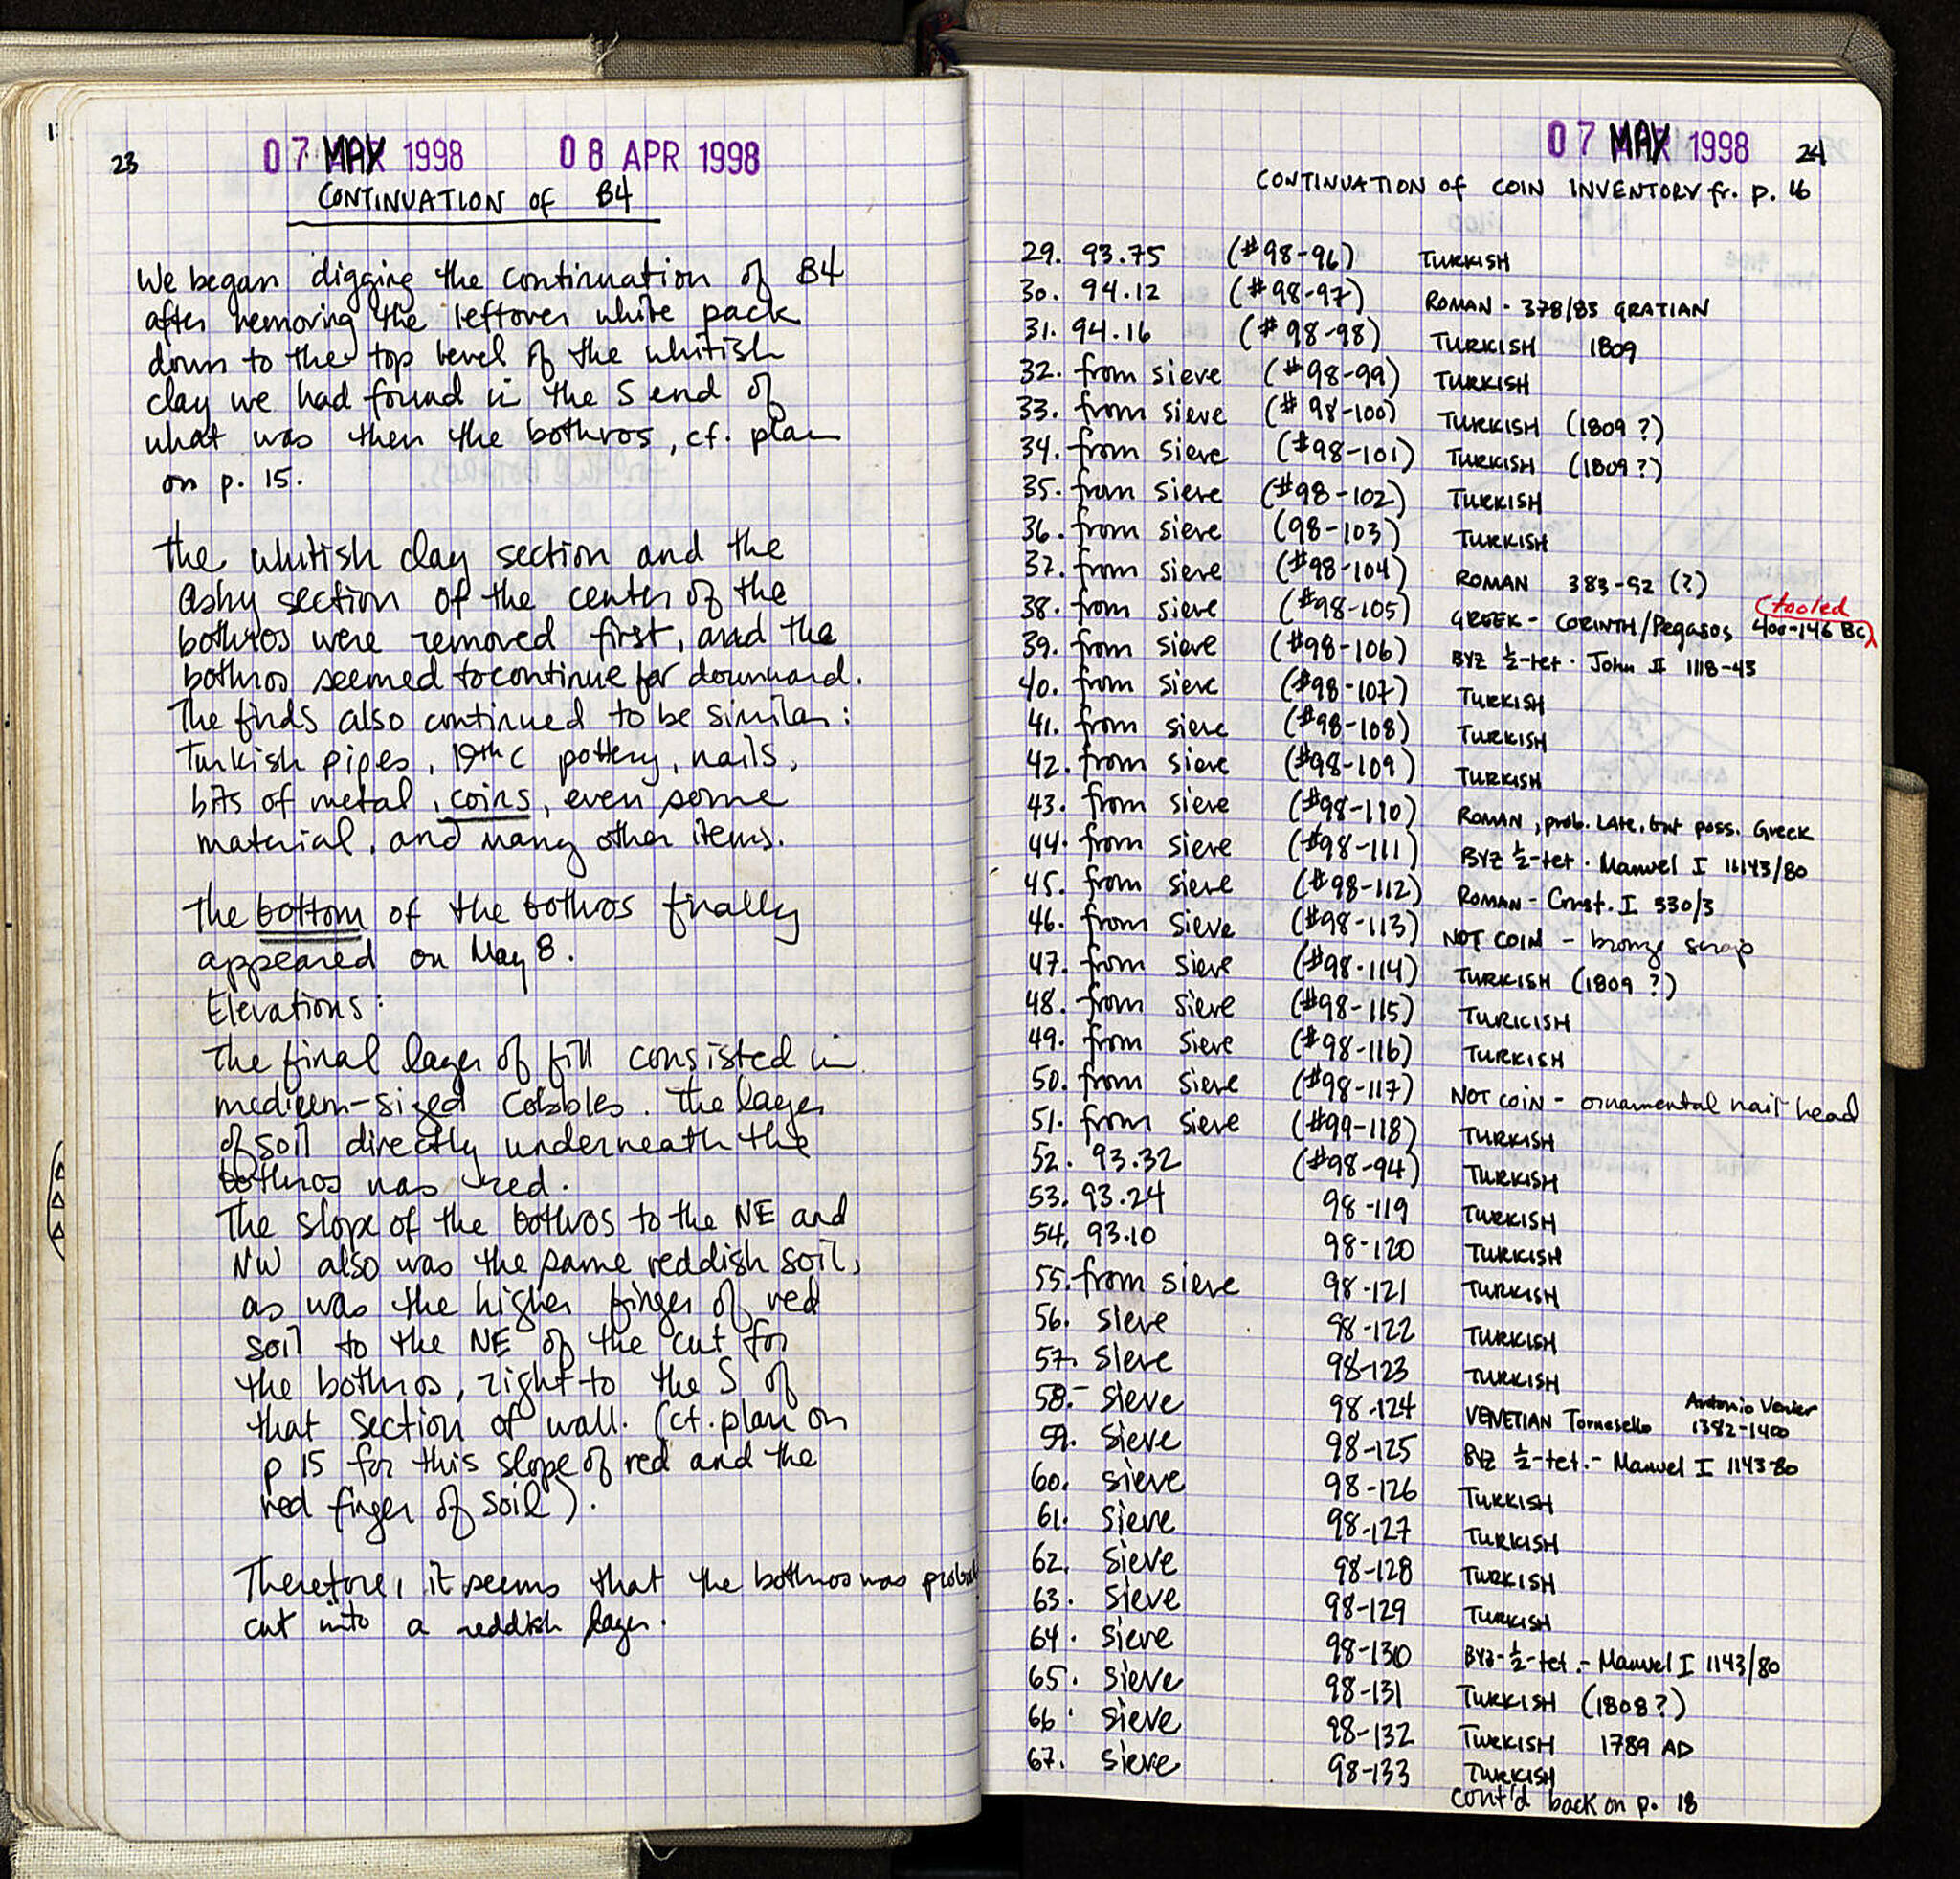 23
07 MAY 1998 08 APR 1998
CONTINUATION of B4
We began digging the continuation of B4
after removing the leftover white pack
down to the top level of the whitish
clay we had found in the S end of
what was then the bothros, cf. plan
on p. 15.
The whitish clay section and the
ashy section of the center of the
bothros were removed first, and the
bothros seemed to continue far downward.
The finds also continued to be similar:
Turkish pipes, 19th c pottery, nails,
bits of metal, coins, even some
material, and many other items.
The bottom of the bothros finally
appeared on May 8.
Elevations:
The final layer of fill consisted in
medium-sized cobbles. The layer
of soil directly underneath the
bothros was red.
The slope of the bothros to the NE and
NW also was the same reddish soil,
as was the higher finger of red
soil to the NE of the cut for
the bothros, right to the S of
that section of wall. (cf. plan on
p 15 for this slope of red and the
red finger of soil).
Therefore, it seems that the bothros was probab
cut into a reddish layer.
07 MAY 1998 24
CONTINUATION of COIN INVENTORY fr. p. 16
29. 93.75 (#98-96) TURKISH
30. 94.12 (#98-97) ROMAN · 378/83 GRATIAN
31. 94.16 (#98-98) TURKISH 1809
32. from sieve (#98-99) TURKISH
33. from sieve (#98-100) TURKISH (1809?)
34. from sieve (#98-101) TURKISH (1809?)
35. from sieve (#98-102) TURKISH
36. from sieve (98-103) TURKISH
37. from sieve (#98-104) ROMAN 383-92 (?)
(tooled
38. from sieve (#98-105) GREEK - CORINTH/Pegasos 400-146 BC)
39. from sieve (#98-106) BYZ ½-tet · John II 1118-43
40. from sieve (#98-107) TURKISH
41. from sieve (#98-108) TURKISH
42. from sieve (#98-109) TURKISH
43. from sieve (#98-110) ROMAN, prob. LATE, but poss. Greek
44. from sieve (#98-111) BYZ ½-tet · Manuel I 11143/80
45. from sieve (#98-112) ROMAN - Const. I 330/3
46. from sieve (#98-113) NOT COIN - bronze scrap
47. from sieve (#98-114) TURKISH (1809?)
48. from sieve (#98-115) TURKISH
49. from sieve (#98-116) TURKISH
50. from sieve (#98-117) NOT COIN - ornamental nail head
51. from sieve (#99-118) TURKISH
52. 93.32 (#98-94) TURKISH
53. 93.24 98-119 TURKISH
54. 93.10 98-120 TURKISH
55. from sieve 98-121 TURKISH
56. sieve 98-122 TURKISH
57. sieve 98-123 TURKISH
Antonio Venier
58. - sieve 98-124 VENETIAN Tornesello 1382-1400
59. sieve 98-125 BYZ ½-tet. - Manuel I 1143-80
60. sieve 98-126 TURKISH
61. sieve 98-127 TURKISH
62. sieve 98-128 TURKISH
63. sieve 98-129 TURKISH
64. sieve 98-130 BYZ-½-tet. - Manuel I 1143/80
65. sieve 98-131 TURKISH (1808?)
66. sieve 98-132 TURKISH 1789 AD
67. sieve 98-133 TURKISH
cont'd back on p. 18